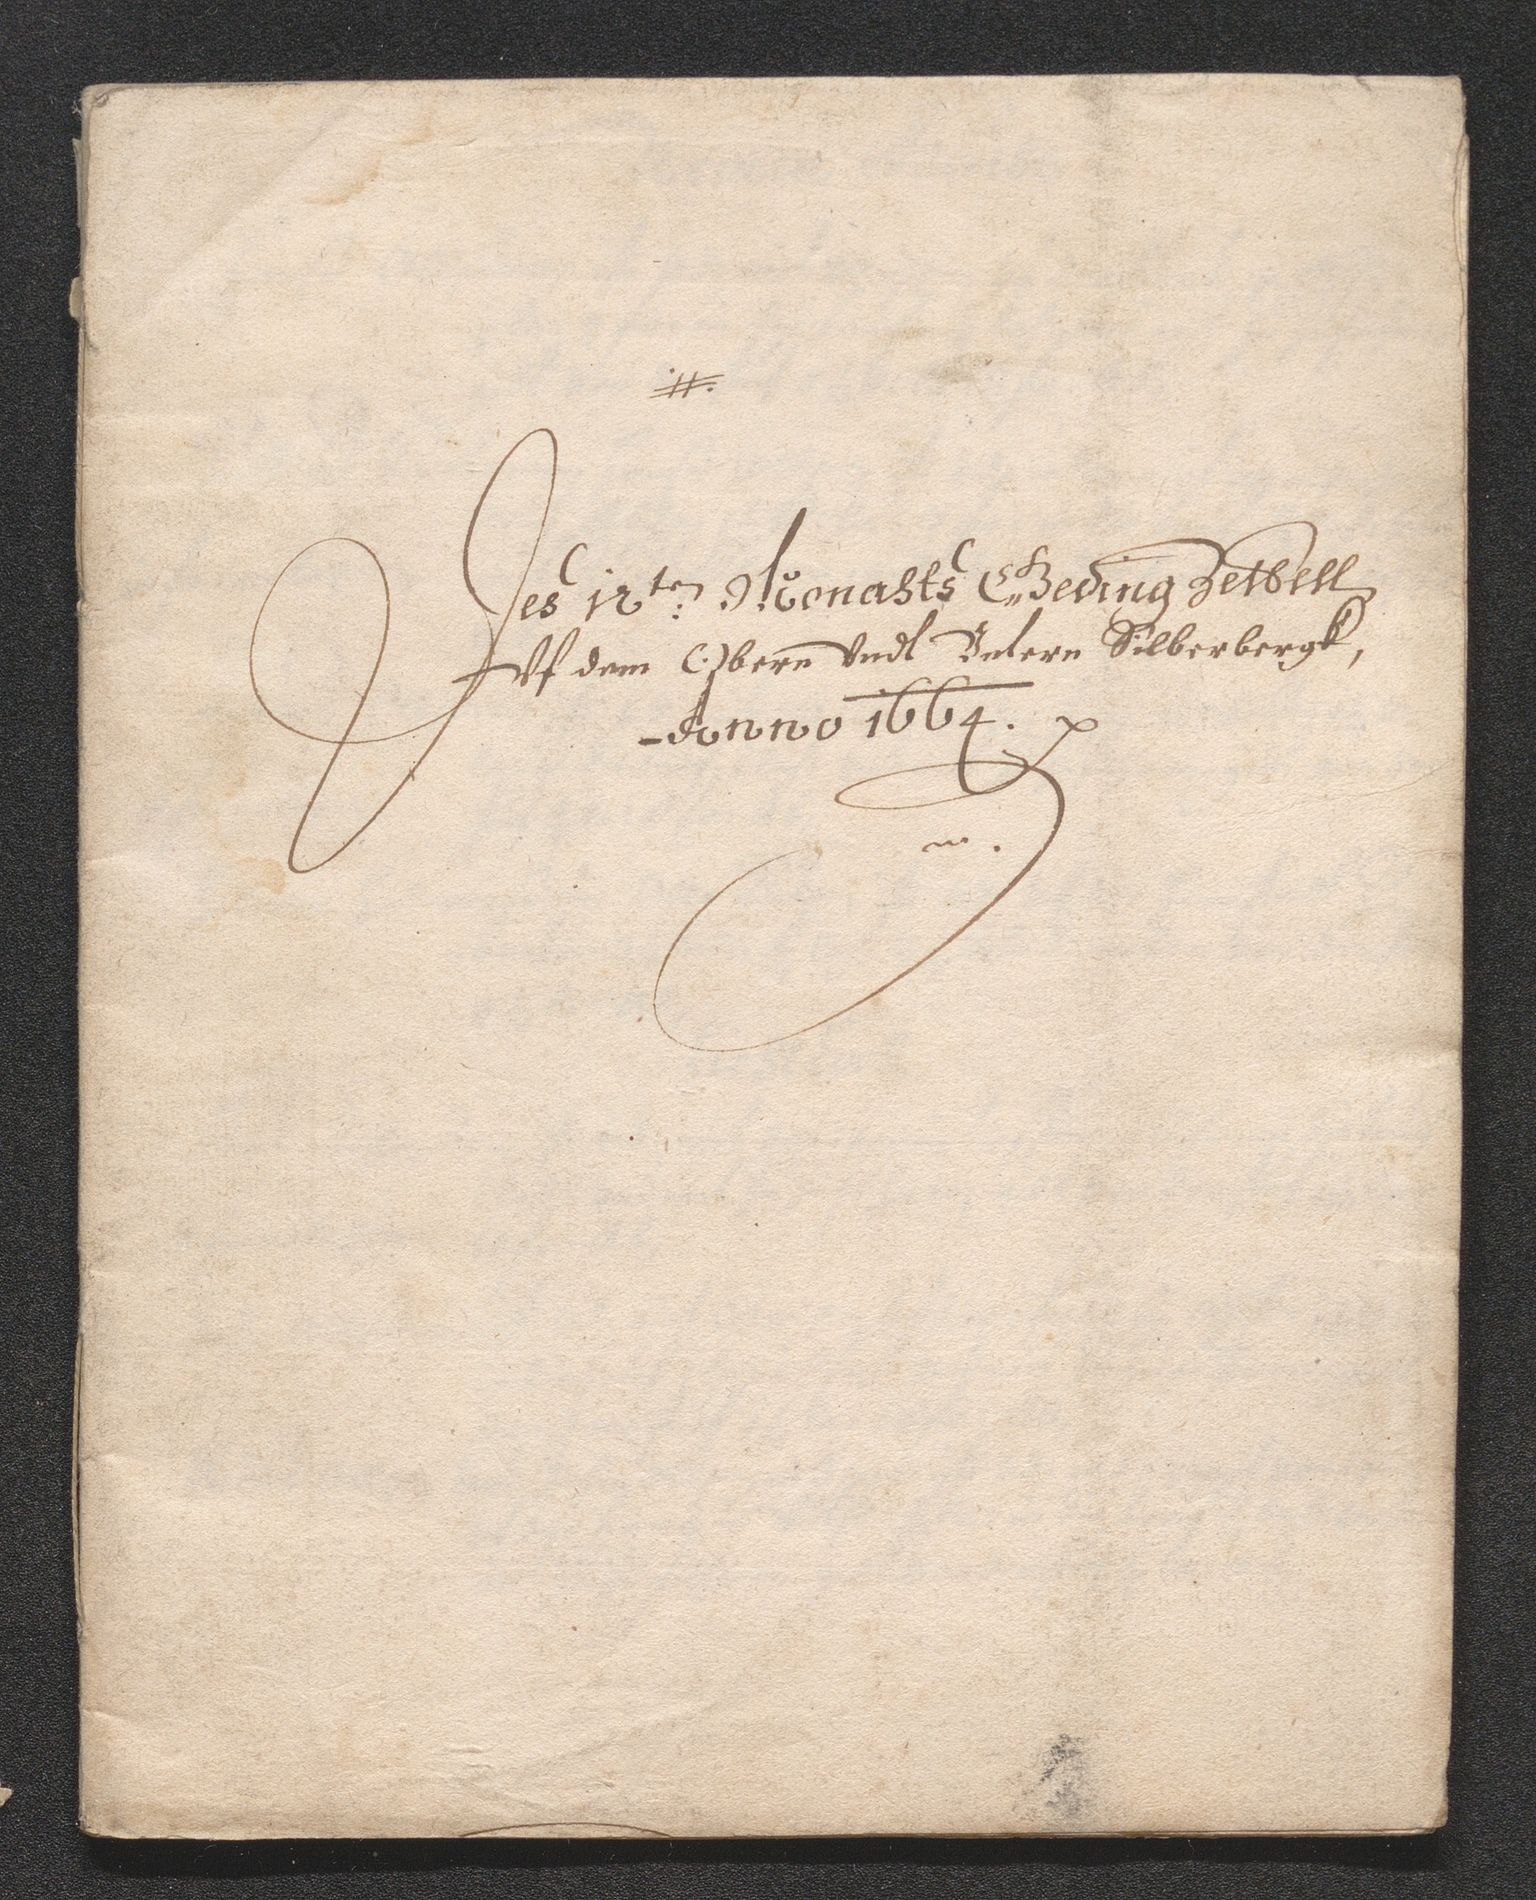 Des 12ten Monahts Geding Zettell
Vf dem Obern Vndt Vntern Silberbergk,
Anno 1664.